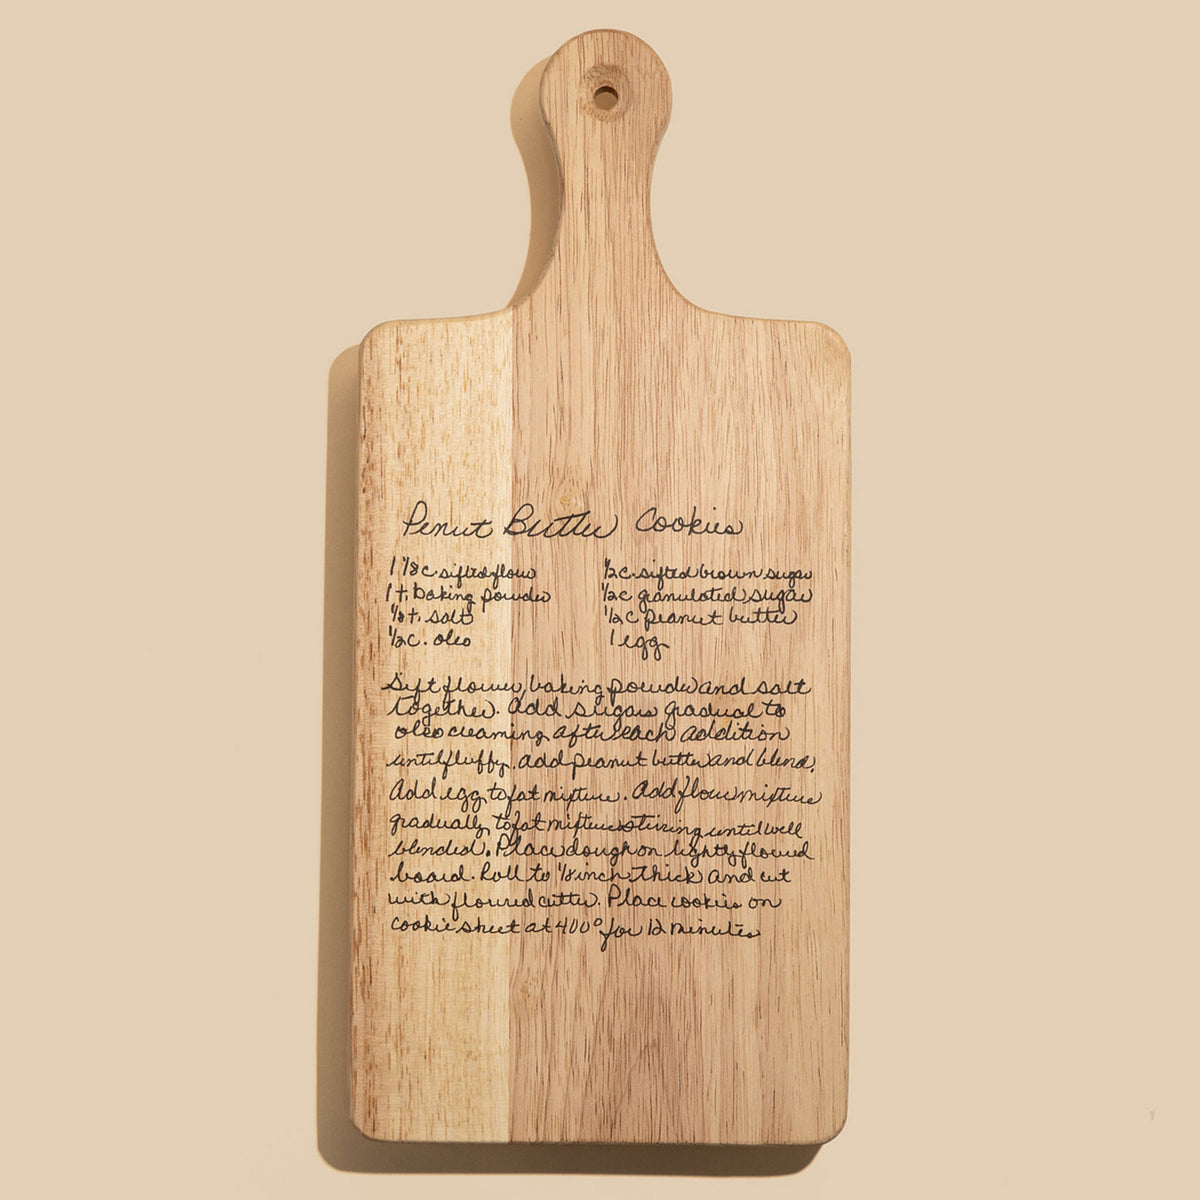 Penut Butter Cookies
1 1/8 c. sifted flour
1 t. baking powder
1/8 t. salt
1/2 c. oleo
1/2 c. sifted brown sugar
1/2 c granulated sugar
1/2 c peanut butter
1 egg
Sift flower, baking powder and salt
together. Add sugars gradual to
oleo creaming after each addition
until fluffy. add peanut butter and blend.
Add egg to fat mixture. Add flour mixture
gradually to fat mixture stirring until well
blended. Place dough on lightly floured
board. Roll to 1/8 inch thick and cut
with floured cutter. Place cookies on
cookie sheet at 400° for 12 minutes